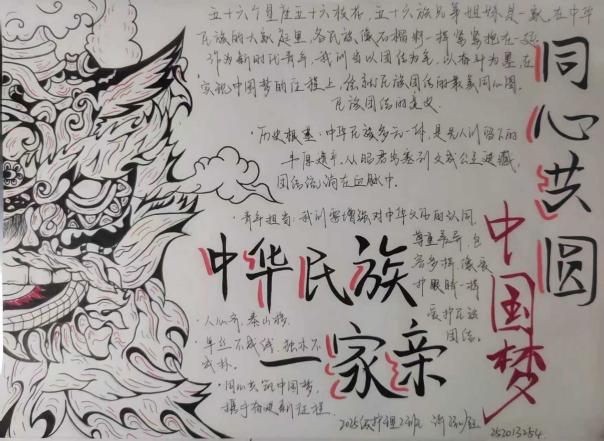 五十六个星座五十六枝花，五十六族兄弟姐妹是一家，在中华
民族的大家庭里，各民族像石榴籽一样紧紧抱在一起
作为新时代青年，我们当以团结为笔，以奋斗为墨，在
实现中国梦的征程上，绘就民族团结的最美同心圆。
民族团结的意义
·历史根基：中华民族多元一体，是先人们留下的
丰厚遗产，从昭君出塞到文成公主进藏，
团结流淌在血脉中。
·青年担当：我们需增强对中华文化的认同，
尊重差异，包
容多样，像爱
护眼睛一样
爱护民族
团结。
中华民族
一家亲
同心共圆
中国梦
·人心齐，泰山移。
·单丝不成线，独木不
成林。
·同心共筑中国梦，
携手奋进新征程。
2025级护理2班
252013254